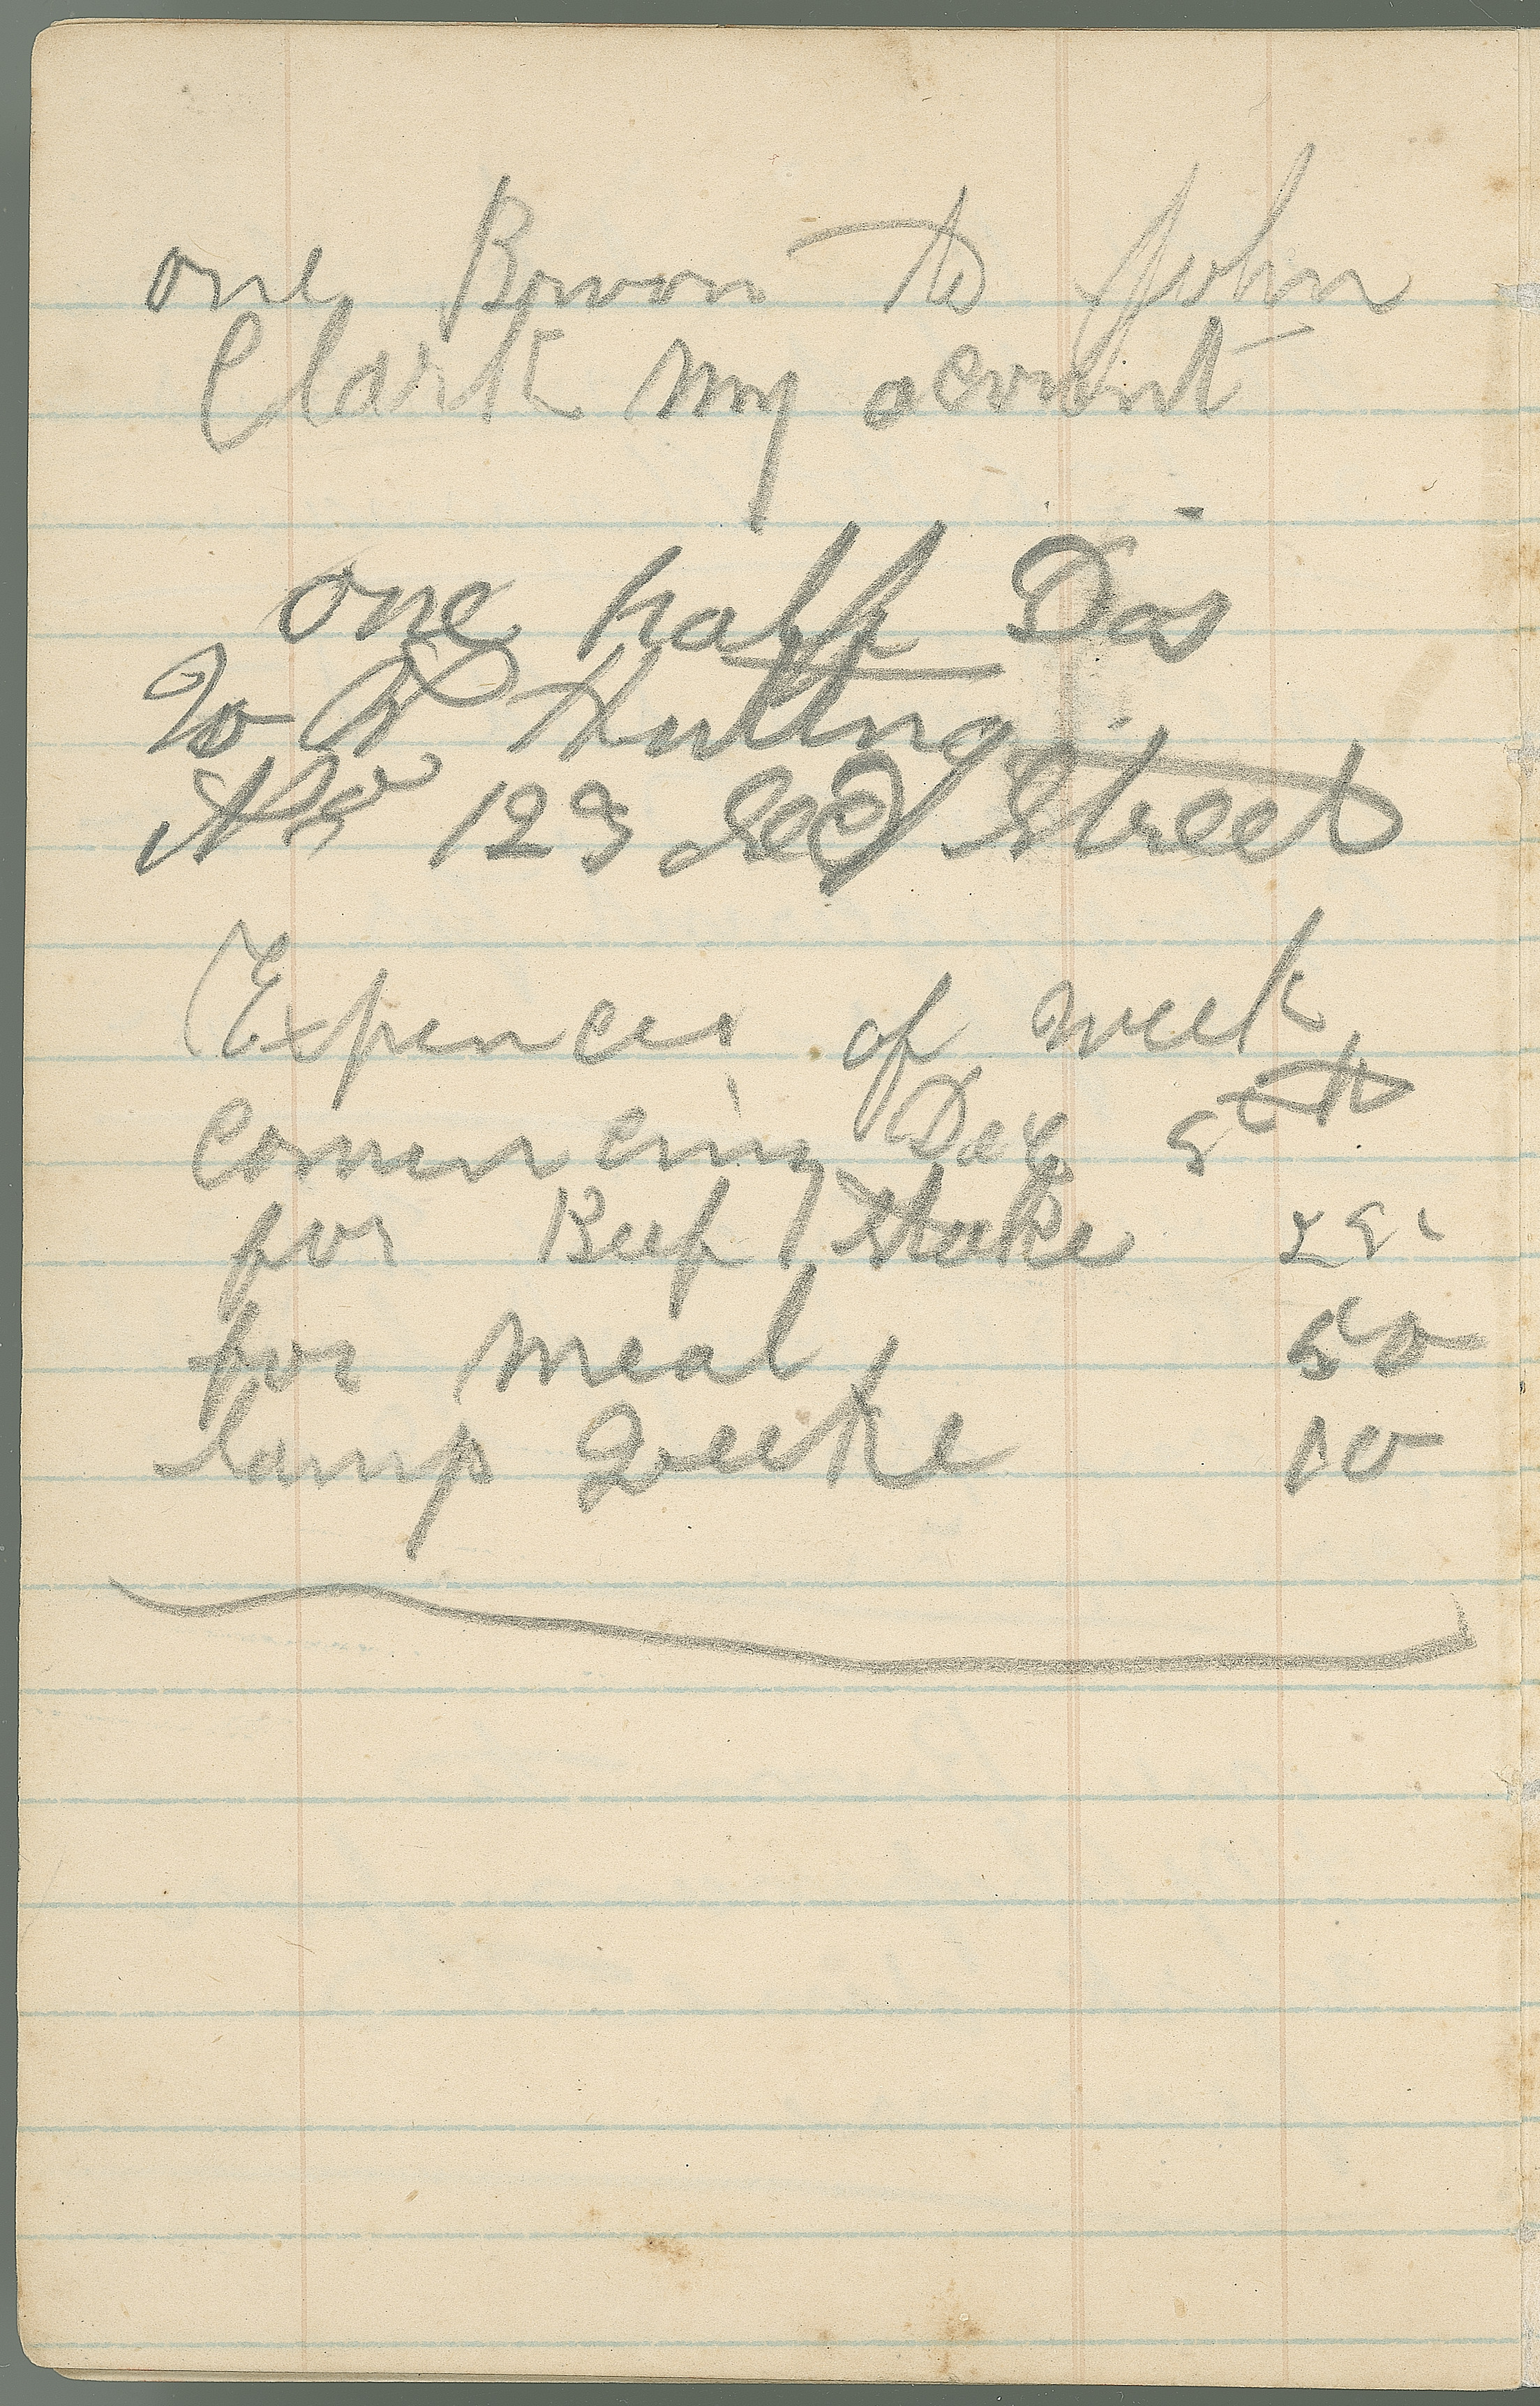 one Broom to John
Clark my acount
one half Dos
To A Hulling
No 123 Sec Street
Expences of week
Comencing Dec 5th
for Beef stake 25
for meal 50
lamp Weeke 10